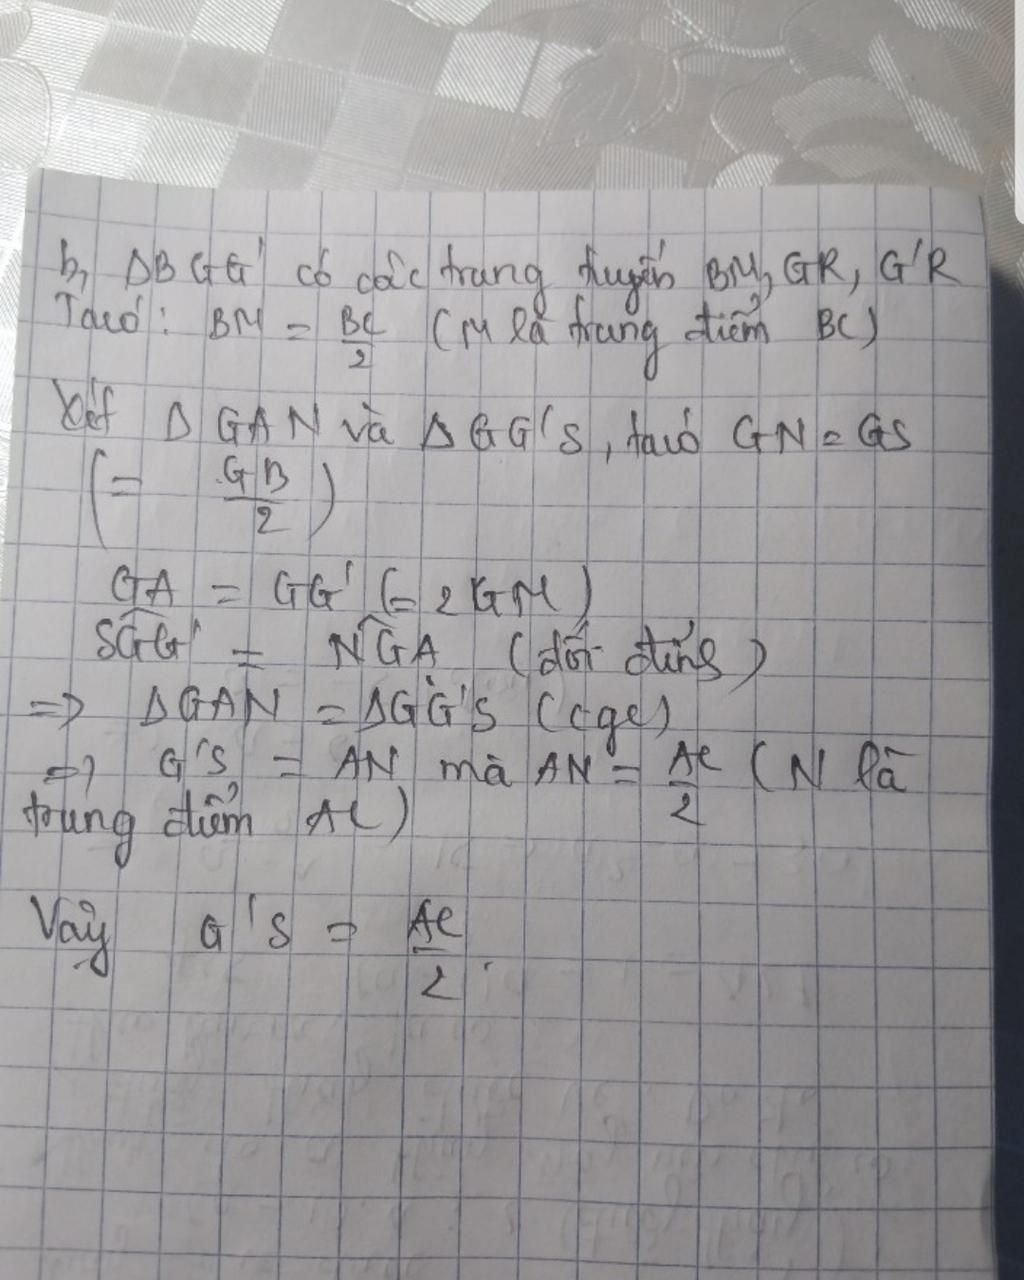 b, ΔBGG' có các trung tuyến BM, GR, G'R
Ta có: BM = BC/2 (M là trung điểm BC)
Xét ΔGAN và ΔGG'S, ta có GN = GS
(= GB/2)
GA = GG' (= 2GM)
SGG' = NGA (đối đỉnh)
=> ΔGAN = ΔGG'S (cgc)
=> G'S = AN mà AN = AC/2 (N là
trung điểm AC)
Vậy G'S = AC/2.